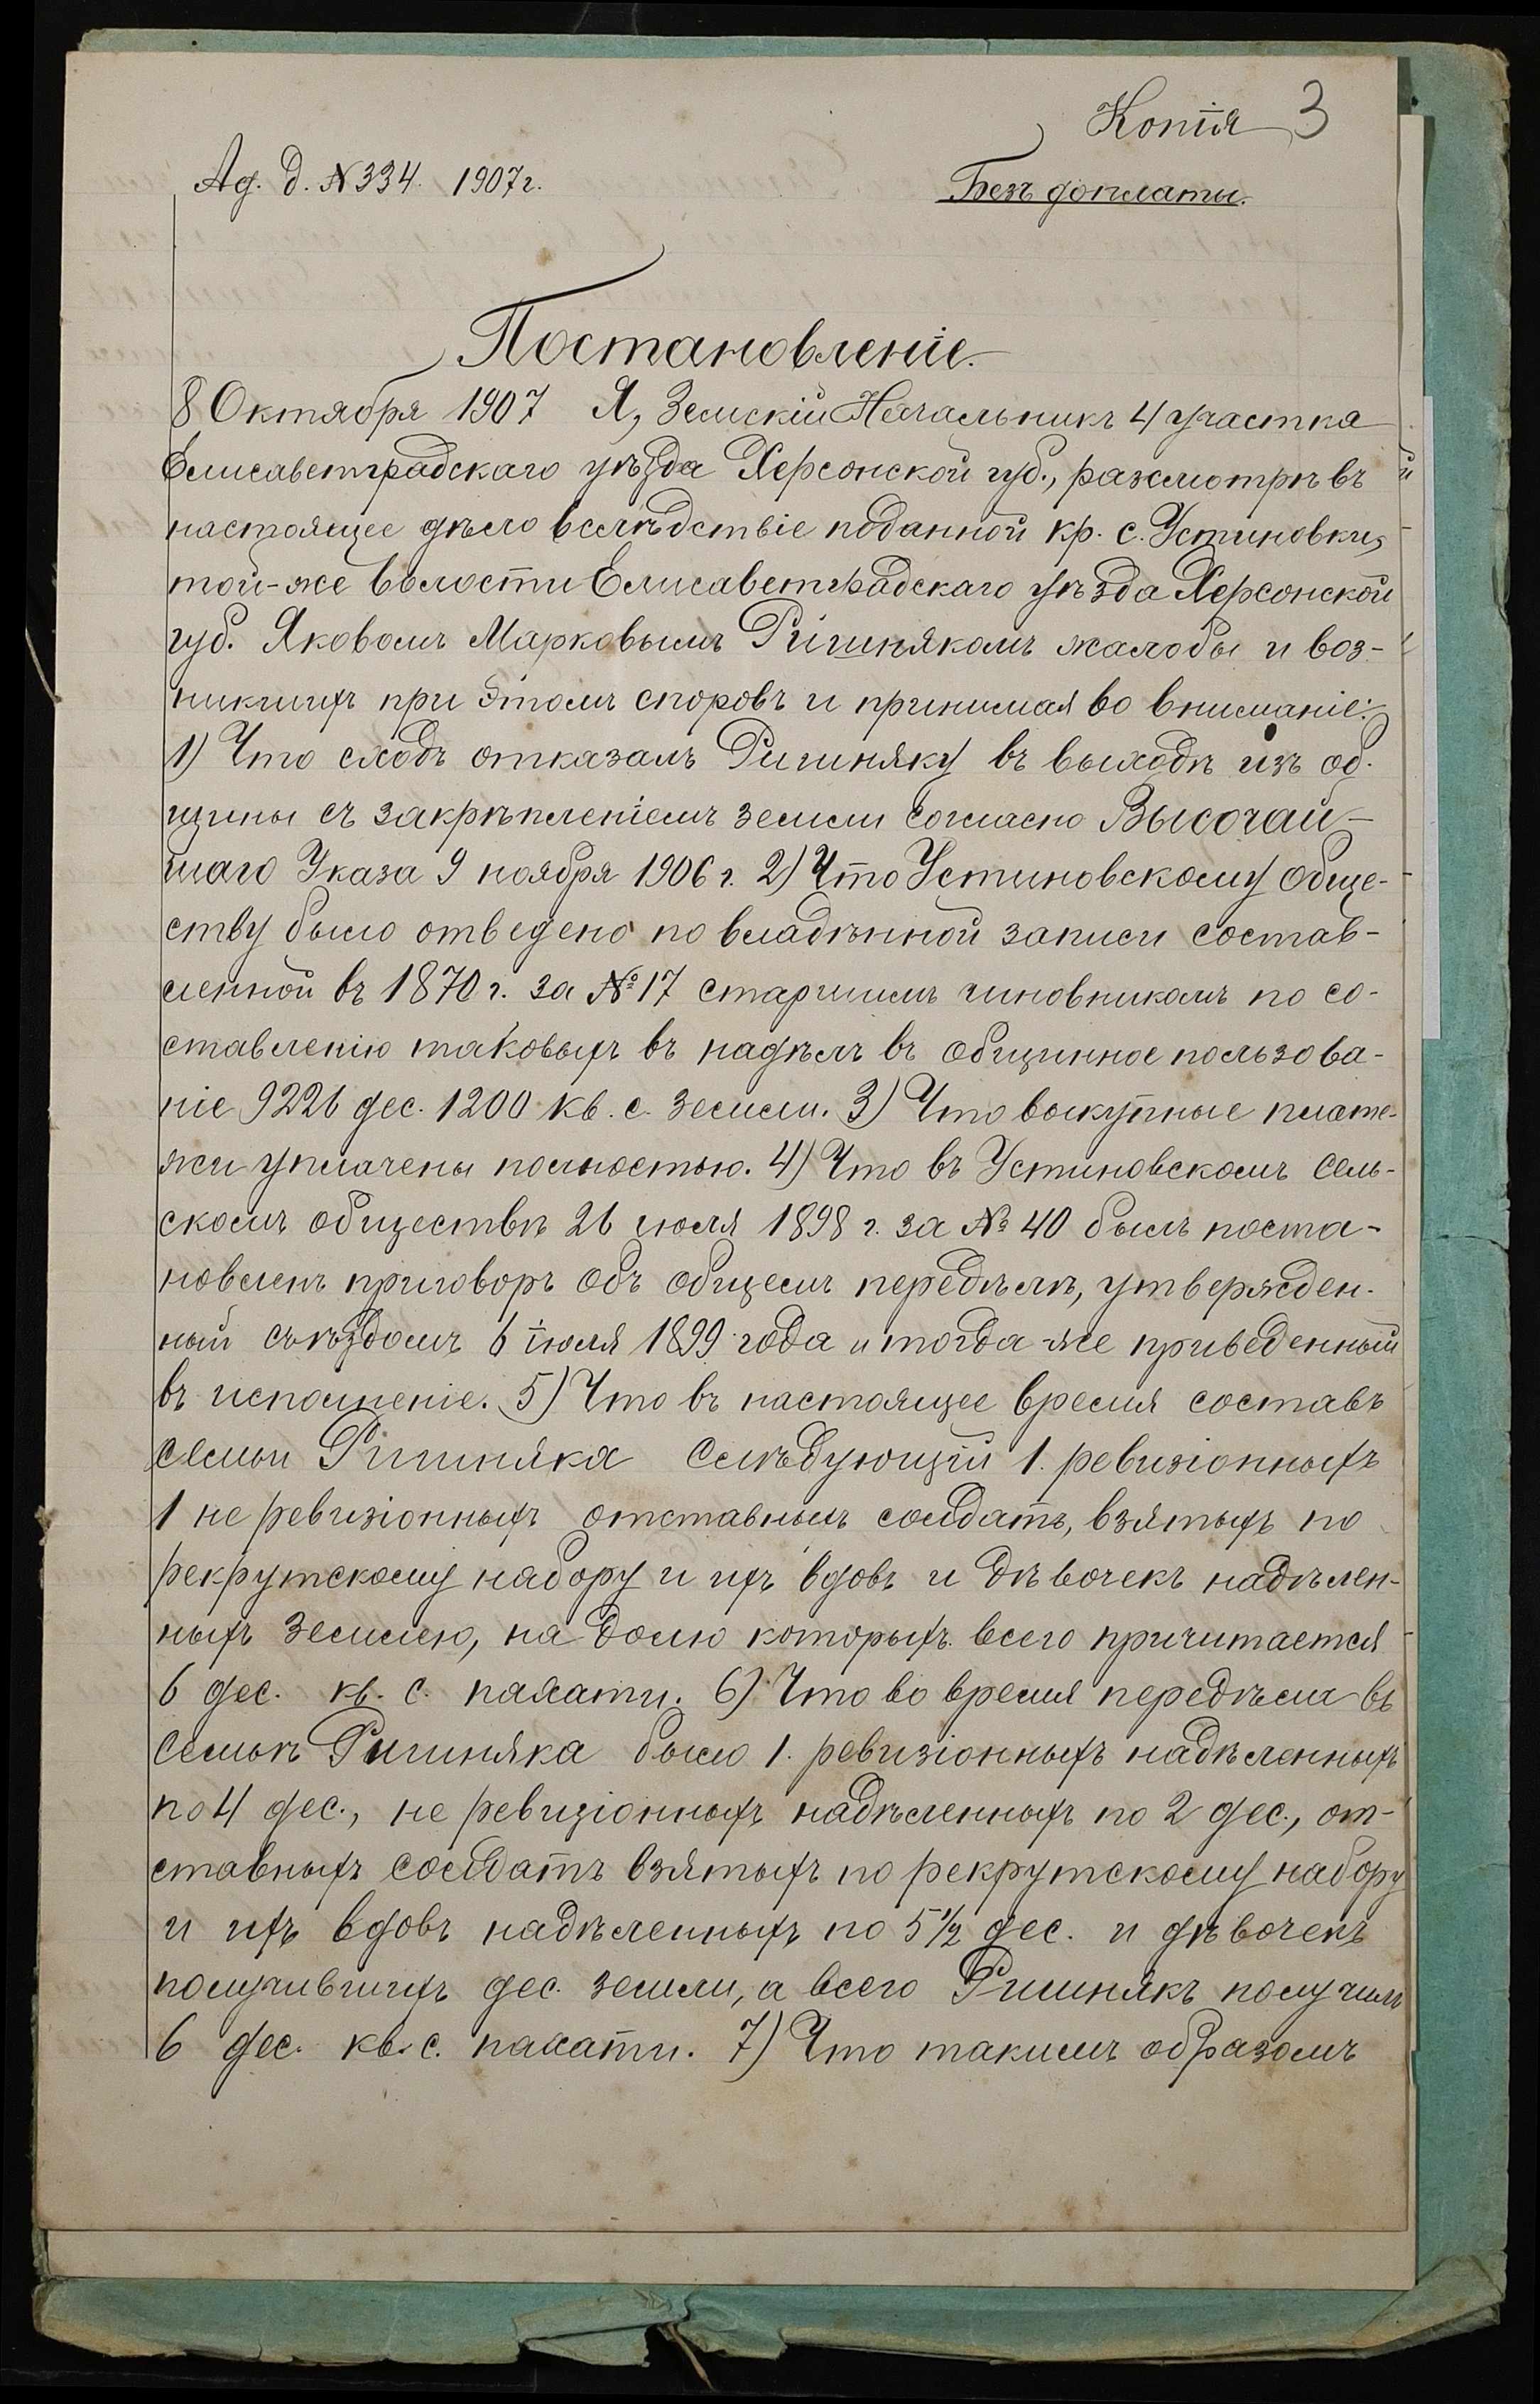 Копія 3
Ад. д. № 334. 1907 г.
Безъ доплаты.
Постановленіе.
8 Октября 1907 Я, Земскій Начальникъ 4 участка
Елисаветградскаго уѣзда Херсонской губ., разсмотрѣвъ
настоящее дѣло вслѣдствіе поданной кр. с. Устиновки,
той-же волости Елисаветградскаго уѣзда Херсонской
губ. Яковомъ Марковымъ Ригинякомъ жалобы и воз-
никшихъ при этомъ споровъ и принимая во вниманіе:
1) Что сходъ отказалъ Ригиняку въ выходѣ изъ об-
щины съ закрѣпленіемъ земли согласно Высочай-
шаго Указа 9 ноября 1906 г. 2) Что Устиновскому обще-
ству было отведено по владѣнной записи состав-
ленной въ 1870 г. за № 17 старшимъ чиновникомъ по со-
ставленію таковыхъ въ надѣлъ въ общинное пользова-
ніе 9226 дес. 1200 кв. с. земли. 3) Что выкупные плате-
жи уплачены полностью. 4) Что въ Устиновскомъ сель-
скомъ обществѣ 26 июля 1898 г. за № 40 былъ поста-
новленъ приговоръ объ общемъ передѣлѣ, утвержден-
ный съѣздомъ 6 іюля 1899 года и тогда-же приведенный
въ исполненіе. 5) Что въ настоящее время составъ
семьи Ригиняка слѣдующій 1. ревизіонныхъ
1 не ревизіонныхъ отставныхъ солдатъ, взятыхъ по
рекрутскому набору и ихъ вдовъ и дѣвочекъ надѣлен-
ныхъ землею, на долю которыхъ всего причитается
6 дес. кв. с. пахати. 6) Что во время передѣла въ
семьѣ Ригиняка было 1. ревизіонныхъ надѣленныхъ
по 4 дес., не ревизіонныхъ надѣленныхъ по 2 дес., от-
ставныхъ солдатъ взятыхъ по рекрутскому набору
и ихъ вдовъ надѣленныхъ по 5 ½ дес. и дѣвочекъ
получившихъ дес. земли, а всего Ригинякъ получилъ
6 дес. кв. с. пахати. 7) Что такимъ образомъ